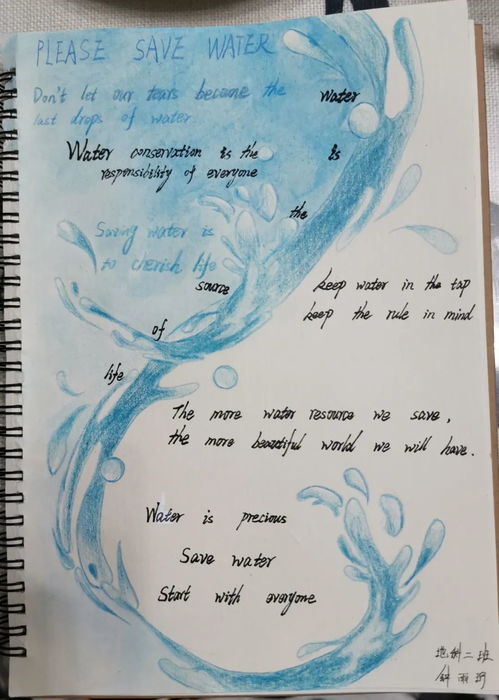 PLEASE SAVE WATER
Don't let our tears become the
last drops of water
Water conservation is the
responsibility of everyone
Saving water is
to cherish life
Water
is
the
source
of
life
keep water in the tap
keep the rule in mind
The more water resource we save,
the more beautiful world we will have.
Water is precious
Save water
Start with everyone
地科二班